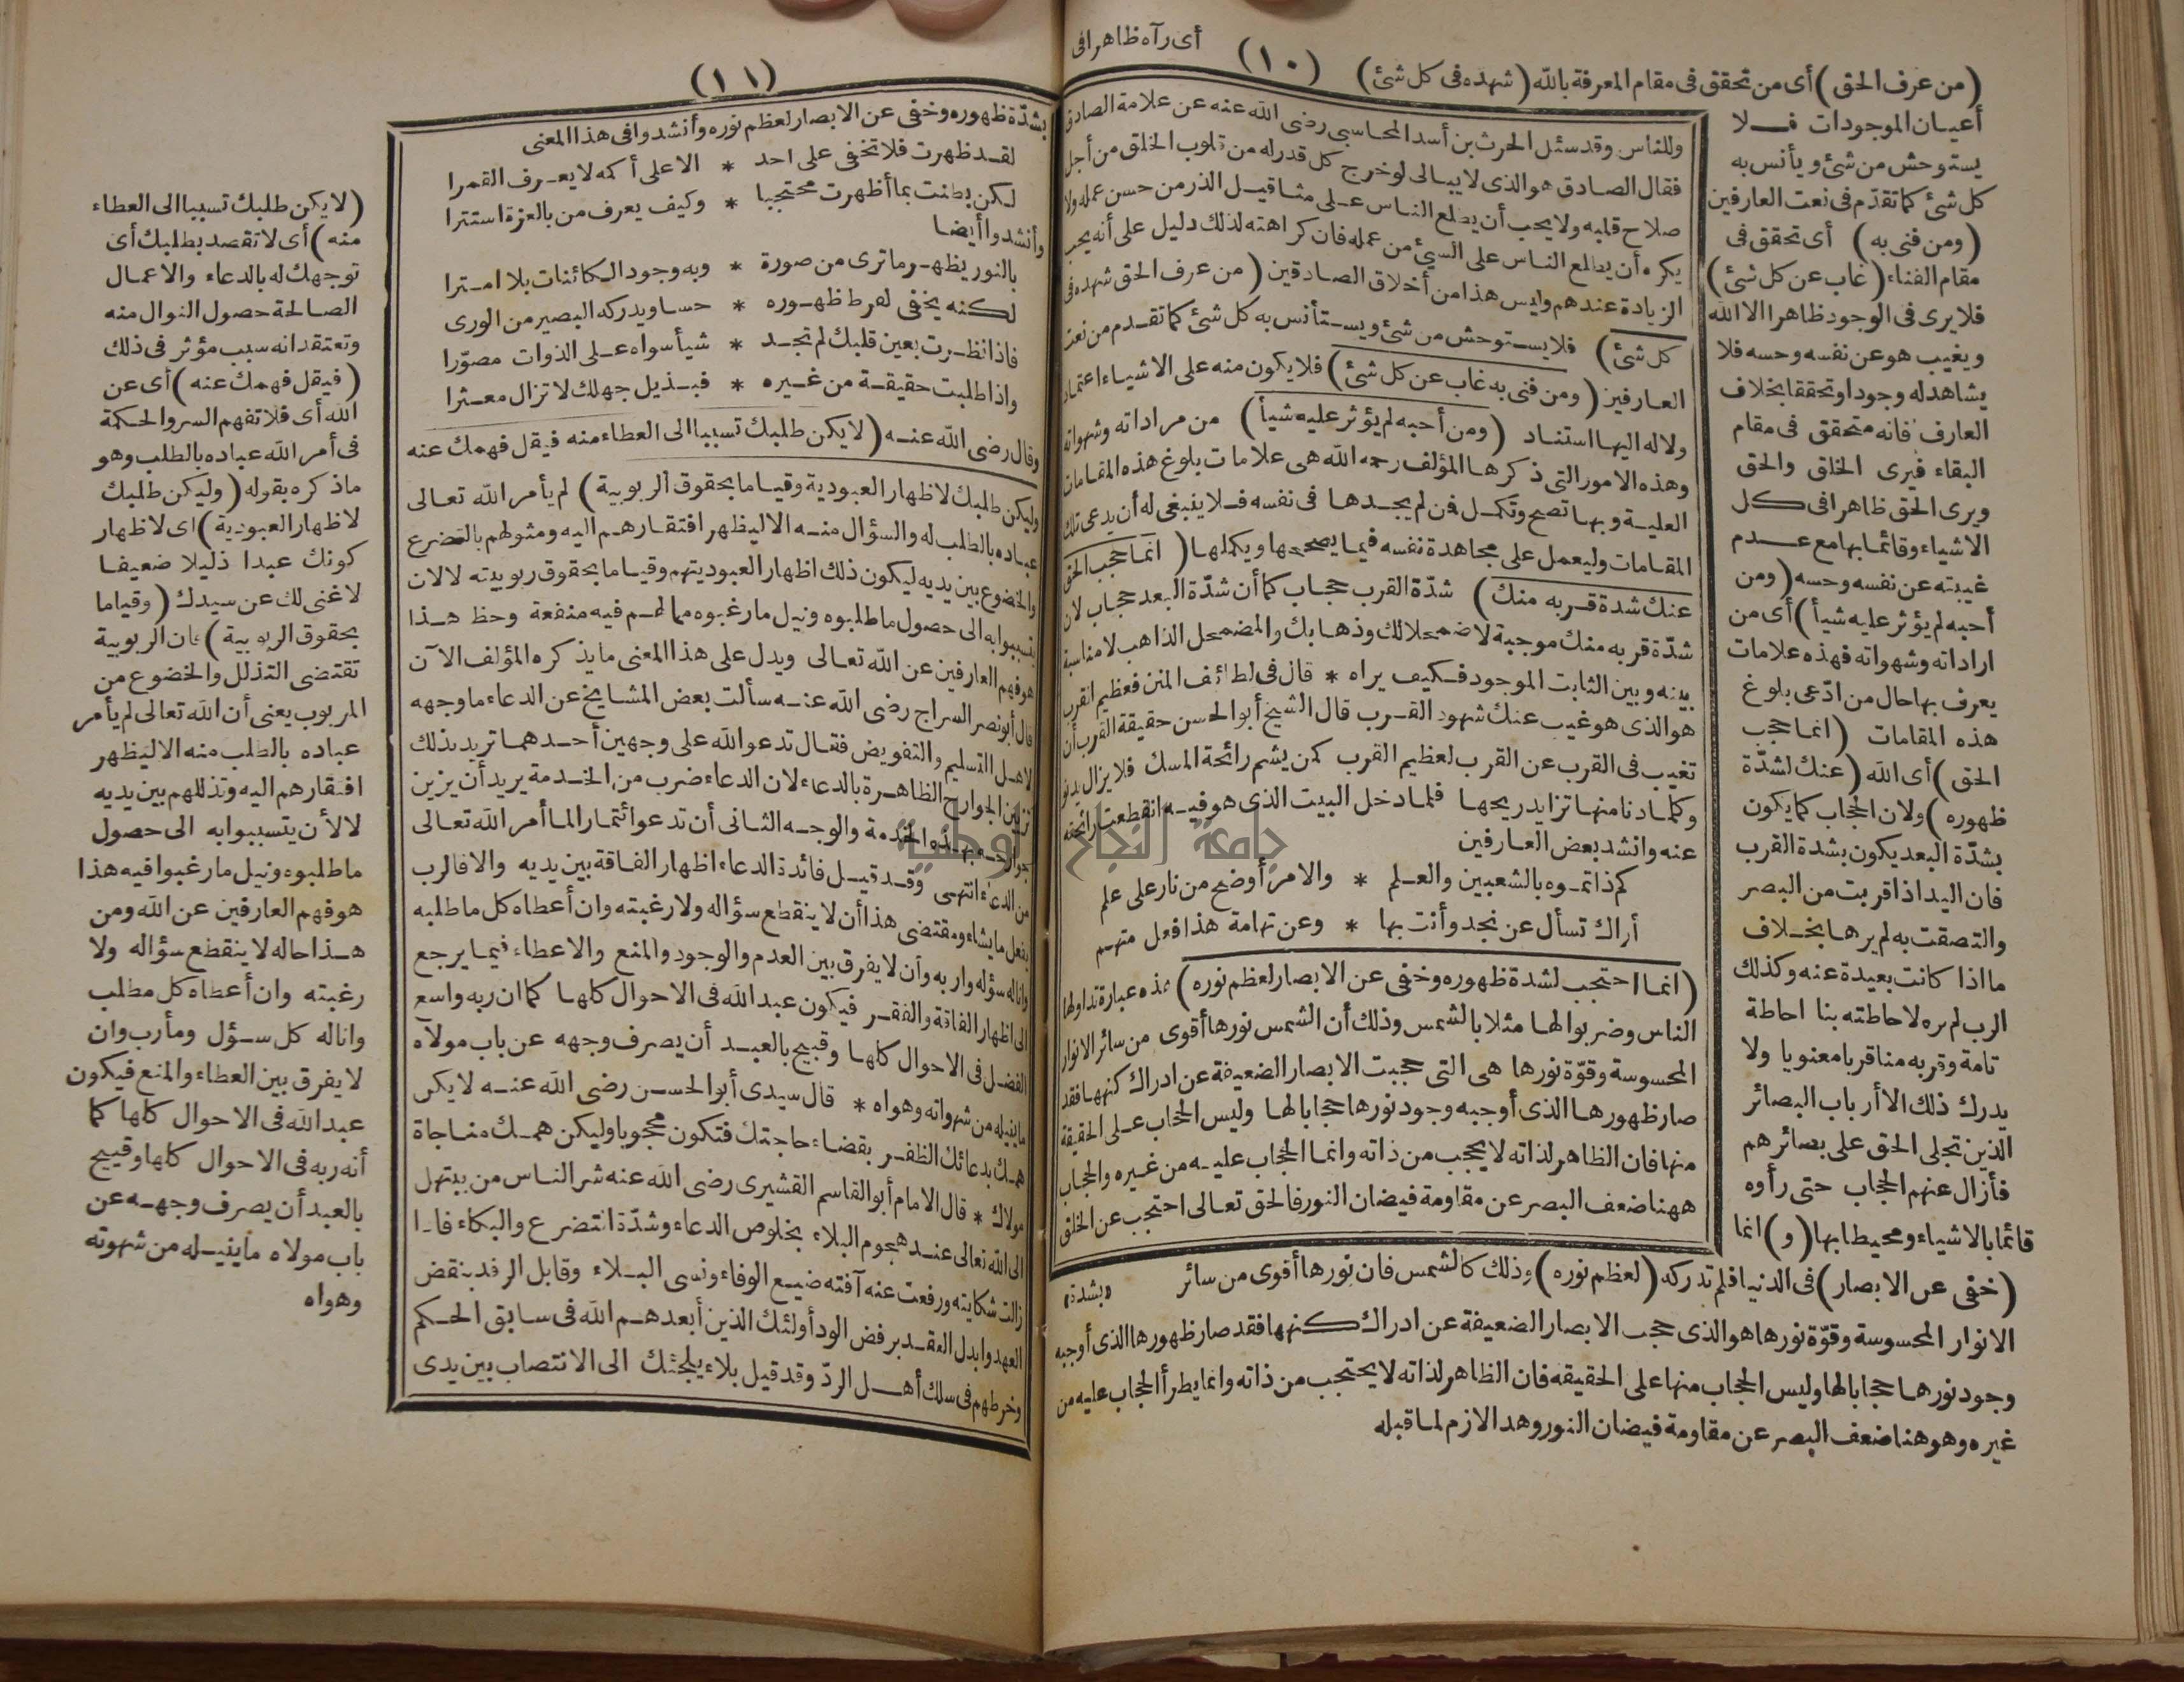 أى رآه ظاهرا فى
(١٠)
(من عرف الحق) أى من تحقق فى مقام المعرفة بالله (شهده فى كل شئ)
أعيان الموجودات فلا
يستوحش من شئ ويأنس به
كل شئ كما تقدّم فى نعت العارفين
(ومن فنى به) أى تحقق فى
مقام الفناء (غاب عن كل شئ)
فلا يرى فى الوجود ظاهرا الا الله
ويغيب هو عن نفسه وحسه فلا
يشاهد له وجودا وتحققا بخلاف
العارف فانه متحقق فى مقام
البقاء فيرى الخلق والحق
ويرى الحق ظاهرا فى كل
الاشياء وقائما بها مع عدم
غيبته عن نفسه وحسه (ومن
أحبه لم يؤثر عليه شيأ) أى من
اراداته وشهواته فهذه علامات
يعرف بها حال من ادّعى بلوغ
هذه المقامات (انما حجب
الحق) أى الله (عنك لشدّة
ظهوره) ولان الحجاب كما يكون
بشدّة البعد يكون بشدة القرب
فان اليد اذا قربت من البصر
والتصقت به لم يرها بخلاف
ما اذا كانت بعيدة عنه وكذلك
الرب لم يره لاحاطته بنا احاطة
تامة وقربه منا قربا معنويا ولا
يدرك ذلك الا أرباب البصائر
الذين تجلى الحق على بصائرهم
فأزال عنهم الحجاب حتى رأوه
قائما بالاشياء ومحيطا بها (و) انما
وللناس وقد سئل الحرث بن أسد المحاسبى رضى الله عنه عن علامة الصادق
فقال الصادق هو الذى لا يبالى لو خرج كل قدر له من قلوب الخلق من أجل
صلاح قلبه ولا يحب أن يطلع الناس على مثاقيل الذر من حسن عمله ولا
يكره أن يطلع الناس على السيئ من عمله فان كراهته لذلك دليل على أنه يحب
الزيادة عندهم وليس هذا من أخلاق الصادقين (من عرف الحق شهده فى
كل شئ) فلا يستوحش من شئ ويستأنس به كل شئ كما تقدم من نعت
العارفين (ومن فنى به غاب عن كل شئ) فلا يكون منه على الاشياء اعتماد
ولا له اليها استناد (ومن أحبه لم يؤثر عليه شيأ) من مراداته وشهواته
وهذه الامور التى ذكرها المؤلف رحمه الله هى علامات بلوغ هذه المقامات
العلية وبها تصح وتكمل فمن لم يجدها فى نفسه فلا ينبغى له أن يدعى تلك
المقامات وليعمل على مجاهدة نفسه فيما يصححها ويكملها (انما حجب الحق
عنك شدة قربه منك) شدّة القرب حجاب كما أن شدّة البعد حجاب لان
شدّة قربه منك موجبة لاضمحلالك وذهابك والمضمحل الذاهب لا مناسبة
بينه وبين الثابت الموجود فكيف يراه * قال فى لطائف المنن فعظيم القرب
هو الذى هو غيب عنك شهود القرب قال الشيخ أبو الحسن حقيقة القرب أن
تغيب فى القرب عن القرب لعظيم القرب كمن يشم رائحة المسك فلا يزال يدنو
وكلما دنا منها تزايد ريحها فلما دخل البيت الذى هو فيه انقطعت رائحته
عنه وانشد بعض العارفين
كم ذا تموه بالشعبين والعلم * والامر أوضح من نار على علم
أراك تسأل عن نجد وأنت بها * وعن تهامة هذا فعل متهم
(انما احتجب لشدة ظهوره وخفى عن الابصار لعظم نوره) هذه عبارة تداولها
الناس وضربوا لها مثلا بالشمس وذلك أن الشمس نورها أقوى من سائر الانوار
المحسوسة وقوّة نورها هى التى حجبت الابصار الضعيفة عن ادراك كنهها فقد
صار ظهورها الذى أوجبه وجود نورها حجابا لها وليس الحجاب على الحقيقة
منها فان الظاهر لذاته لا يحجب من ذاته وانما الحجاب عليه من غيره والحجاب
ههنا ضعف البصر عن مقاومة فيضان النور فالحق تعالى احتجب عن الخلق
(خفى عن الابصار) فى الدنيا فلم تدركه (لعظم نوره) وذلك كالشمس فان نورها أقوى من سائر
«بشدة»
الانوار المحسوسة وقوّة نورها هو الذى حجب الابصار الضعيفة عن ادراك كنهها فقد صار ظهورها الذى أوجبه
وجود نورها حجابا لها وليس الحجاب منها على الحقيقه فان الظاهر لذاته لا يحتجب من ذاته وانما يطرأ الحجاب عليه من
غيره وهو هنا ضعف البصر عن مقاومة فيضان النور وهد الازم لما قبله
(١١)
بشدّة ظهوره وخفى عن الابصار لعظم نوره وأنشدوا فى هذا المعنى
لقد ظهرت فلا تخفى على احد * الا على أكمه لا يعرف القمرا
لكن بطنت بما أظهرت محتجبا * وكيف يعرف من بالعزة استترا
وأنشدوا أيضا
بالنور يظهر ما ترى من صورة * وبه وجود الكائنات بلا امترا
لكنه يخفى لفرط ظهوره * حسا ويدركه البصير من الورى
فاذا نظرت بعين قلبك لم تجد * شيأ سواه على الذوات مصوّرا
واذا طلبت حقيقة من غيره * فبذيل جهلك لا تزال معثرا
وقال رضى الله عنه (لا يكن طلبك تسببا الى العطاء منه فيقل فهمك عنه
وليكن طلبك لاظهار العبودية وقياما بحقوق الربوبية) لم يأمر الله تعالى
عباده بالطلب له والسؤال منه الا ليظهر افتقارهم اليه ومثولهم بالتضرع
والخضوع بين يديه ليكون ذلك اظهار العبوديتهم وقياما بحقوق ربوبيته لا لان
يتسببوا به الى حصول ما طلبوه ونيل ما رغبوه مما لهم فيه منفعة وحظ هذا
هو فهم العارفين عن الله تعالى ويدل على هذا المعنى ما يذكره المؤلف الآن
قال أبو نصر السراج رضى الله عنه سألت بعض المشايخ عن الدعاء ما وجهه
لاهل التسليم والتفويض فقال تدعو الله على وجهين أحدهما تريد بذلك
تزيين الجوارح الظاهرة بالدعاء لان الدعاء ضرب من الخدمة يريد أن يزين
جوارحه بهذه الخدمة والوجه الثانى أن تدعو ائتمارا لما أمر الله تعالى
من الدعاء انتهى وقد قيل فائدة الدعاء اظهار الفاقة بين يديه والا فالرب
يفعل ما يشاء ومقتضى هذا أن لا ينقطع سؤاله ولا رغبته وان أعطاه كل ما طلبه
واناله سؤله واربه وأن لا يفرق بين العدم والوجود والمنع والاعطاء فيما يرجع
الى اظهار الفاقة والفقر فيكون عبد الله فى الاحوال كلها كما ان ربه واسع
الفضل فى الاحوال كلها وقبيح بالعبد أن يصرف وجهه عن باب مولاه
ما ينيله من شهواته وهواه * قال سيدى أبو الحسن رضى الله عنه لا يكن
همك بدعائك الظفر بقضاء حاجتك فتكون محجوبا وليكن همك مناجاة
مولاك * قال الامام أبو القاسم القشيرى رضى الله عنه شر الناس من يبتهل
الى الله تعالى عند هجوم البلاء بخلوص الدعاء وشدّة التضرع والبكاء فاذا
زالت شكايته ورفعت عنه آفته ضيع الوفاء ونسى البلاء وقابل الرفد بنقض
العهد وابدل العقد برفض الود أولئك الذين أبعدهم الله فى سابق الحكم
وخرطهم فى سلك أهل الردّ وقد قيل بلاء يلجئك الى الانتصاب بين يدى
(لا يكن طلبك تسببا الى العطاء
منه) أى لا تقصد بطلبك أى
توجهك له بالدعاء والاعمال
الصالحة حصول النوال منه
وتعتقد انه سبب مؤثر فى ذلك
(فيقل فهمك عنه) أى عن
الله أى فلا تفهم السر والحكمة
فى أمر الله عباده بالطلب وهو
ما ذكره بقوله (وليكن طلبك
لاظهار العبودية) اى لاظهار
كونك عبدا ذليلا ضعيفا
لا غنى لك عن سيدك (وقياما
بحقوق الربوبية) فان الربوبية
تقتضى التذلل والخضوع من
المربوب يعنى أن الله تعالى لم يأمر
عباده بالطلب منه الا ليظهر
افتقارهم اليه وتذللهم بين يديه
لا لأن يتسببوا به الى حصول
ما طلبوه ونيل ما رغبوا فيه هذا
هو فهم العارفين عن الله ومن
هذا حاله لا ينقطع سؤاله ولا
رغبته وان أعطاه كل مطلب
واناله كل سؤل ومأرب وان
لا يفرق بين العطاء والمنع فيكون
عبد الله فى الاحوال كلها كما
أنه ربه فى الاحوال كلها وقبيح
بالعبد أن يصرف وجهه عن
باب مولاه ما ينيله من شهوته
وهواه
جامعة النجاح الوطنية